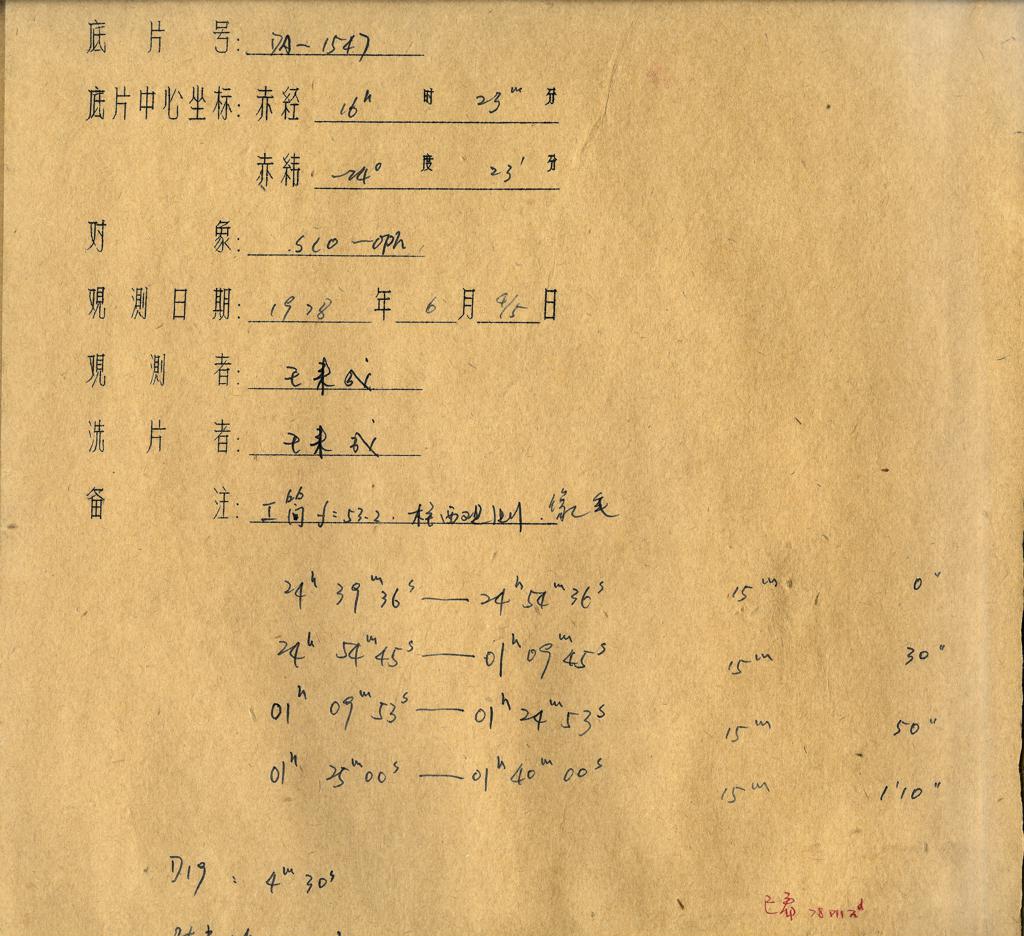 底片号: DA-1547
底片中心坐标: 赤经 16ʰ 时 23ᵐ 分
赤纬 -24° 度 23′ 分
对象: sco-oph
观测日期: 1978 年 6 月 4/5 日
观测者: 王来成
洗片者: 王来成
备注: 工筒 f=53.2.
24ʰ 39ᵐ 36ˢ — 24ʰ 54ᵐ 36ˢ 15ᵐ 0"
24ʰ 54ᵐ 45ˢ — 01ʰ 09ᵐ 45ˢ 15ᵐ 30"
01ʰ 09ᵐ 53ˢ — 01ʰ 24ᵐ 53ˢ 15ᵐ 50"
01ʰ 25ᵐ 00ˢ — 01ʰ 40ᵐ 00ˢ 15ᵐ 1'10"
D19: 4ᵐ 30ˢ